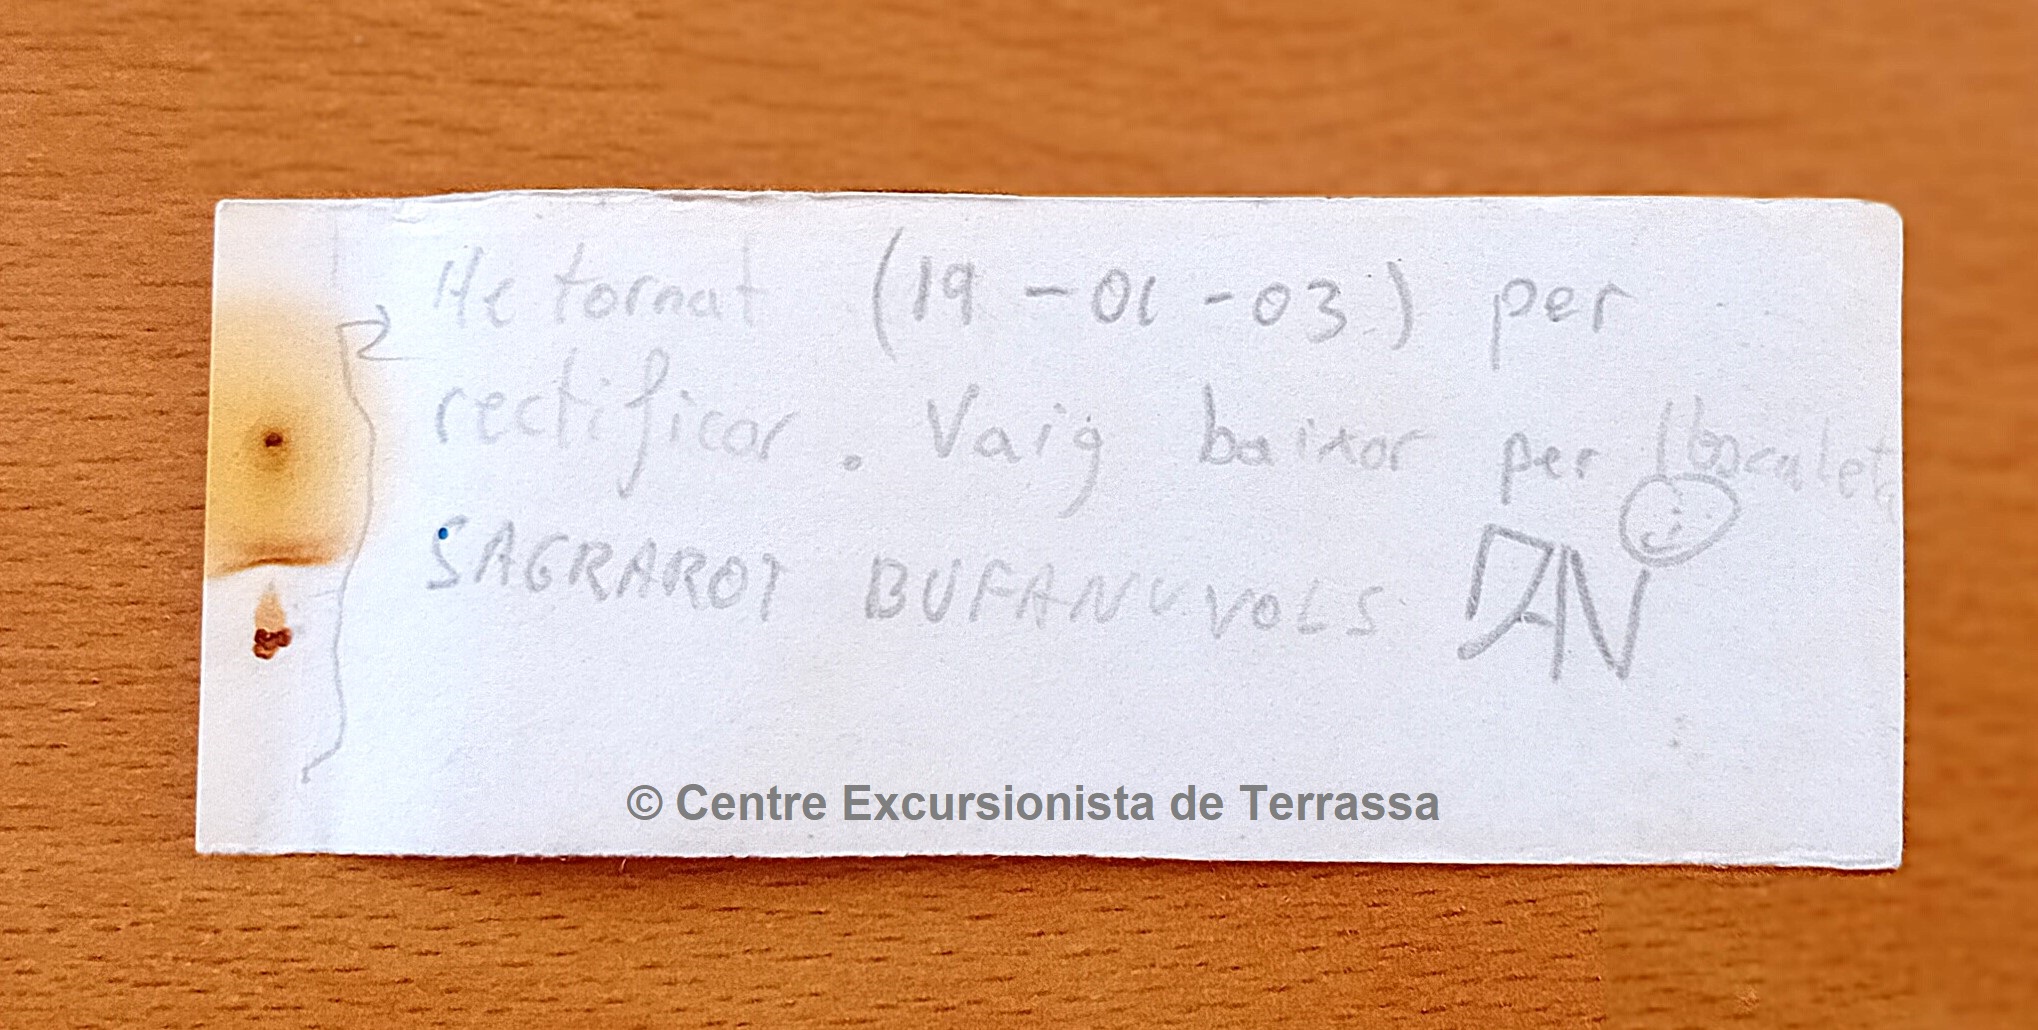 He tornat (19-01-03) per
rectificar. Vaig baixar per l'Escaleta
SAGRAROT BUFANUVOLS DAN
© Centre Excursionista de Terrassa